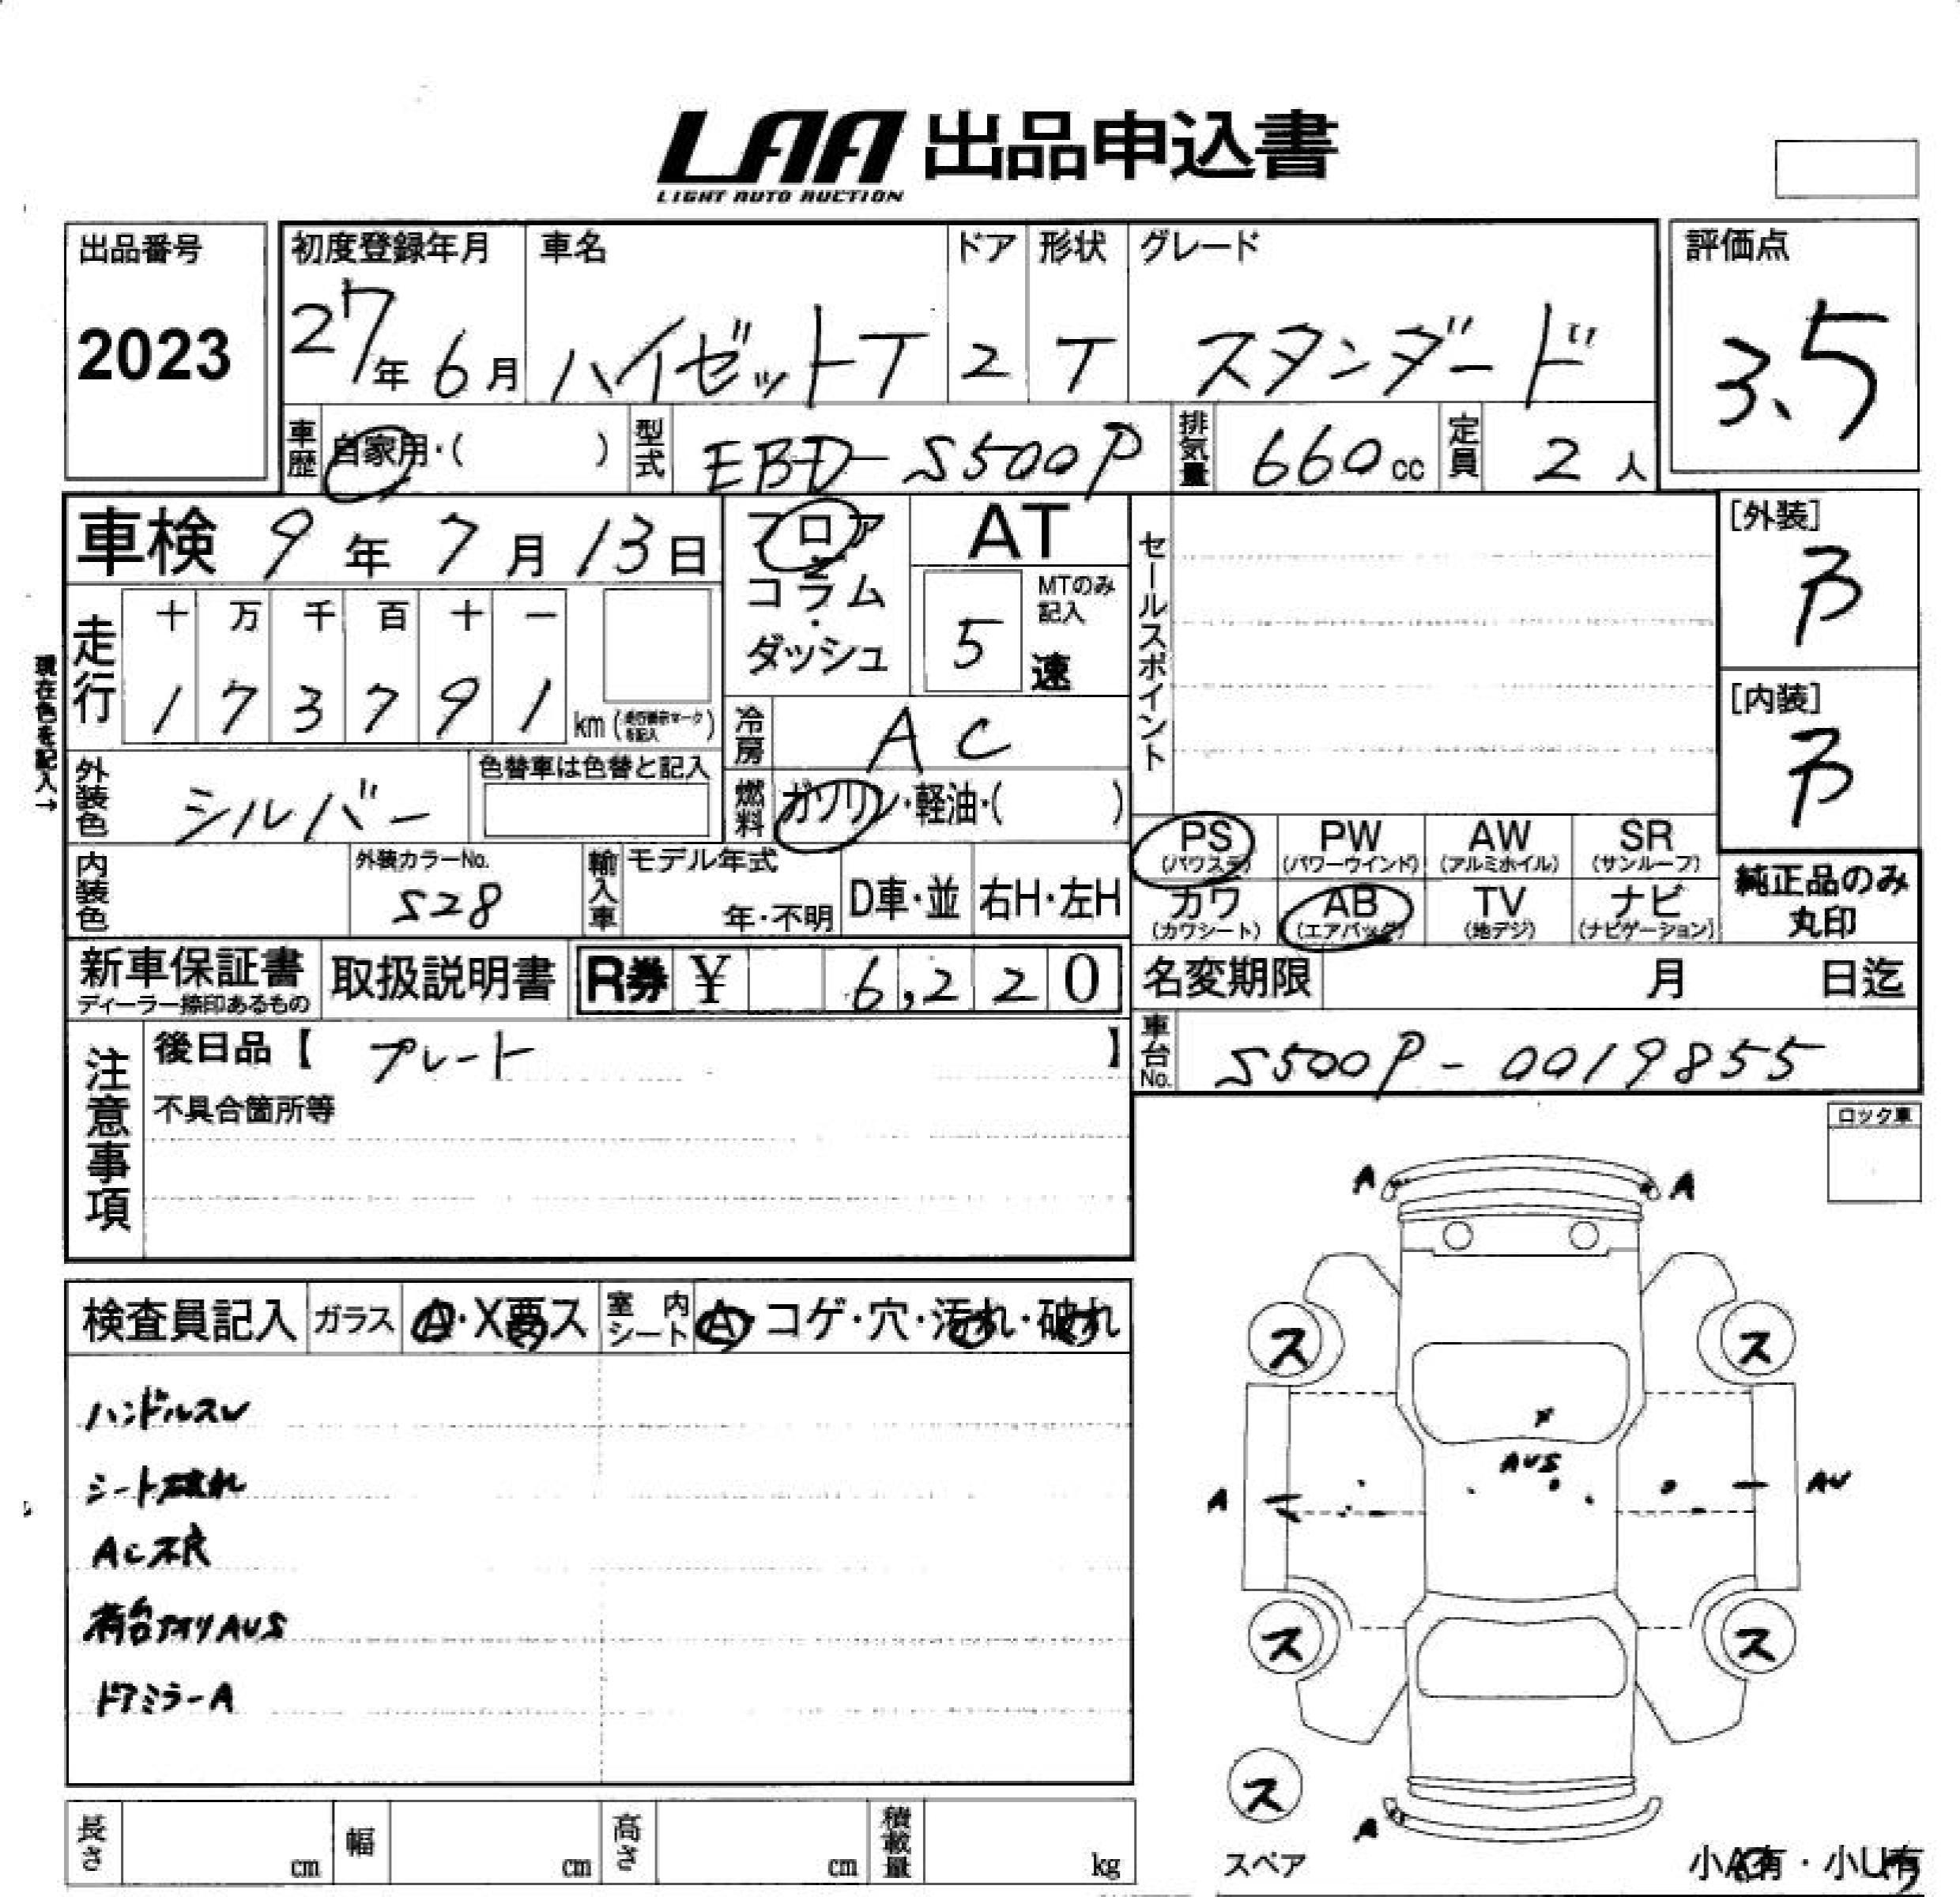 LAA 出品申込書
LIGHT AUTO AUCTION
出品番号
2023
初度登録年月 車名 ドア 形状 グレード 評価点
27年 6月 ハイゼットT 2 T スタンダード 3.5
車歴 自家用・( ) 型式 EBD-S500P 排気量 660cc 定員 2人
車検 9年 7月 13日
フロア
コラム
・
ダッシュ
AT
5
MTのみ
記入
速
セールスポイント
[外装]
[内装]
現在色を記入→
走行 十 万 千 百 十 一
1 7 3 7 9 1 km (走行表示マークを記入)
冷房 AC
外装色 シルバー 色替車は色替と記入
燃料 ガソリン・軽油・( )
PS PW AW SR
(パワステ) (パワーウインド) (アルミホイル) (サンルーフ)
カワ AB TV ナビ
(カワシート) (エアバッグ) (地デジ) (ナビゲーション)
純正品のみ
丸印
内装色 外装カラーNo. S28 輸入車 モデル年式 年・不明 D車・並 右H・左H
新車保証書 取扱説明書 R券 ¥ 6,220
ディーラー捺印あるもの
名変期限 月 日迄
車台No. S500P-0019855
注意事項
後日品【 プレート 】
不具合箇所等
ロック車
検査員記入 ガラス A・X要ス 室内シート A・コゲ・穴・汚れ・破れ
ハンドルスレ
シート破れ
AC不良
荷台アオリAUS
ドアミラーA
A A
ス ス
X
AUS
A AU
ス ス
ス
A
スペア
小A有・小U有
長さ cm 幅 cm 高さ cm 積載量 kg